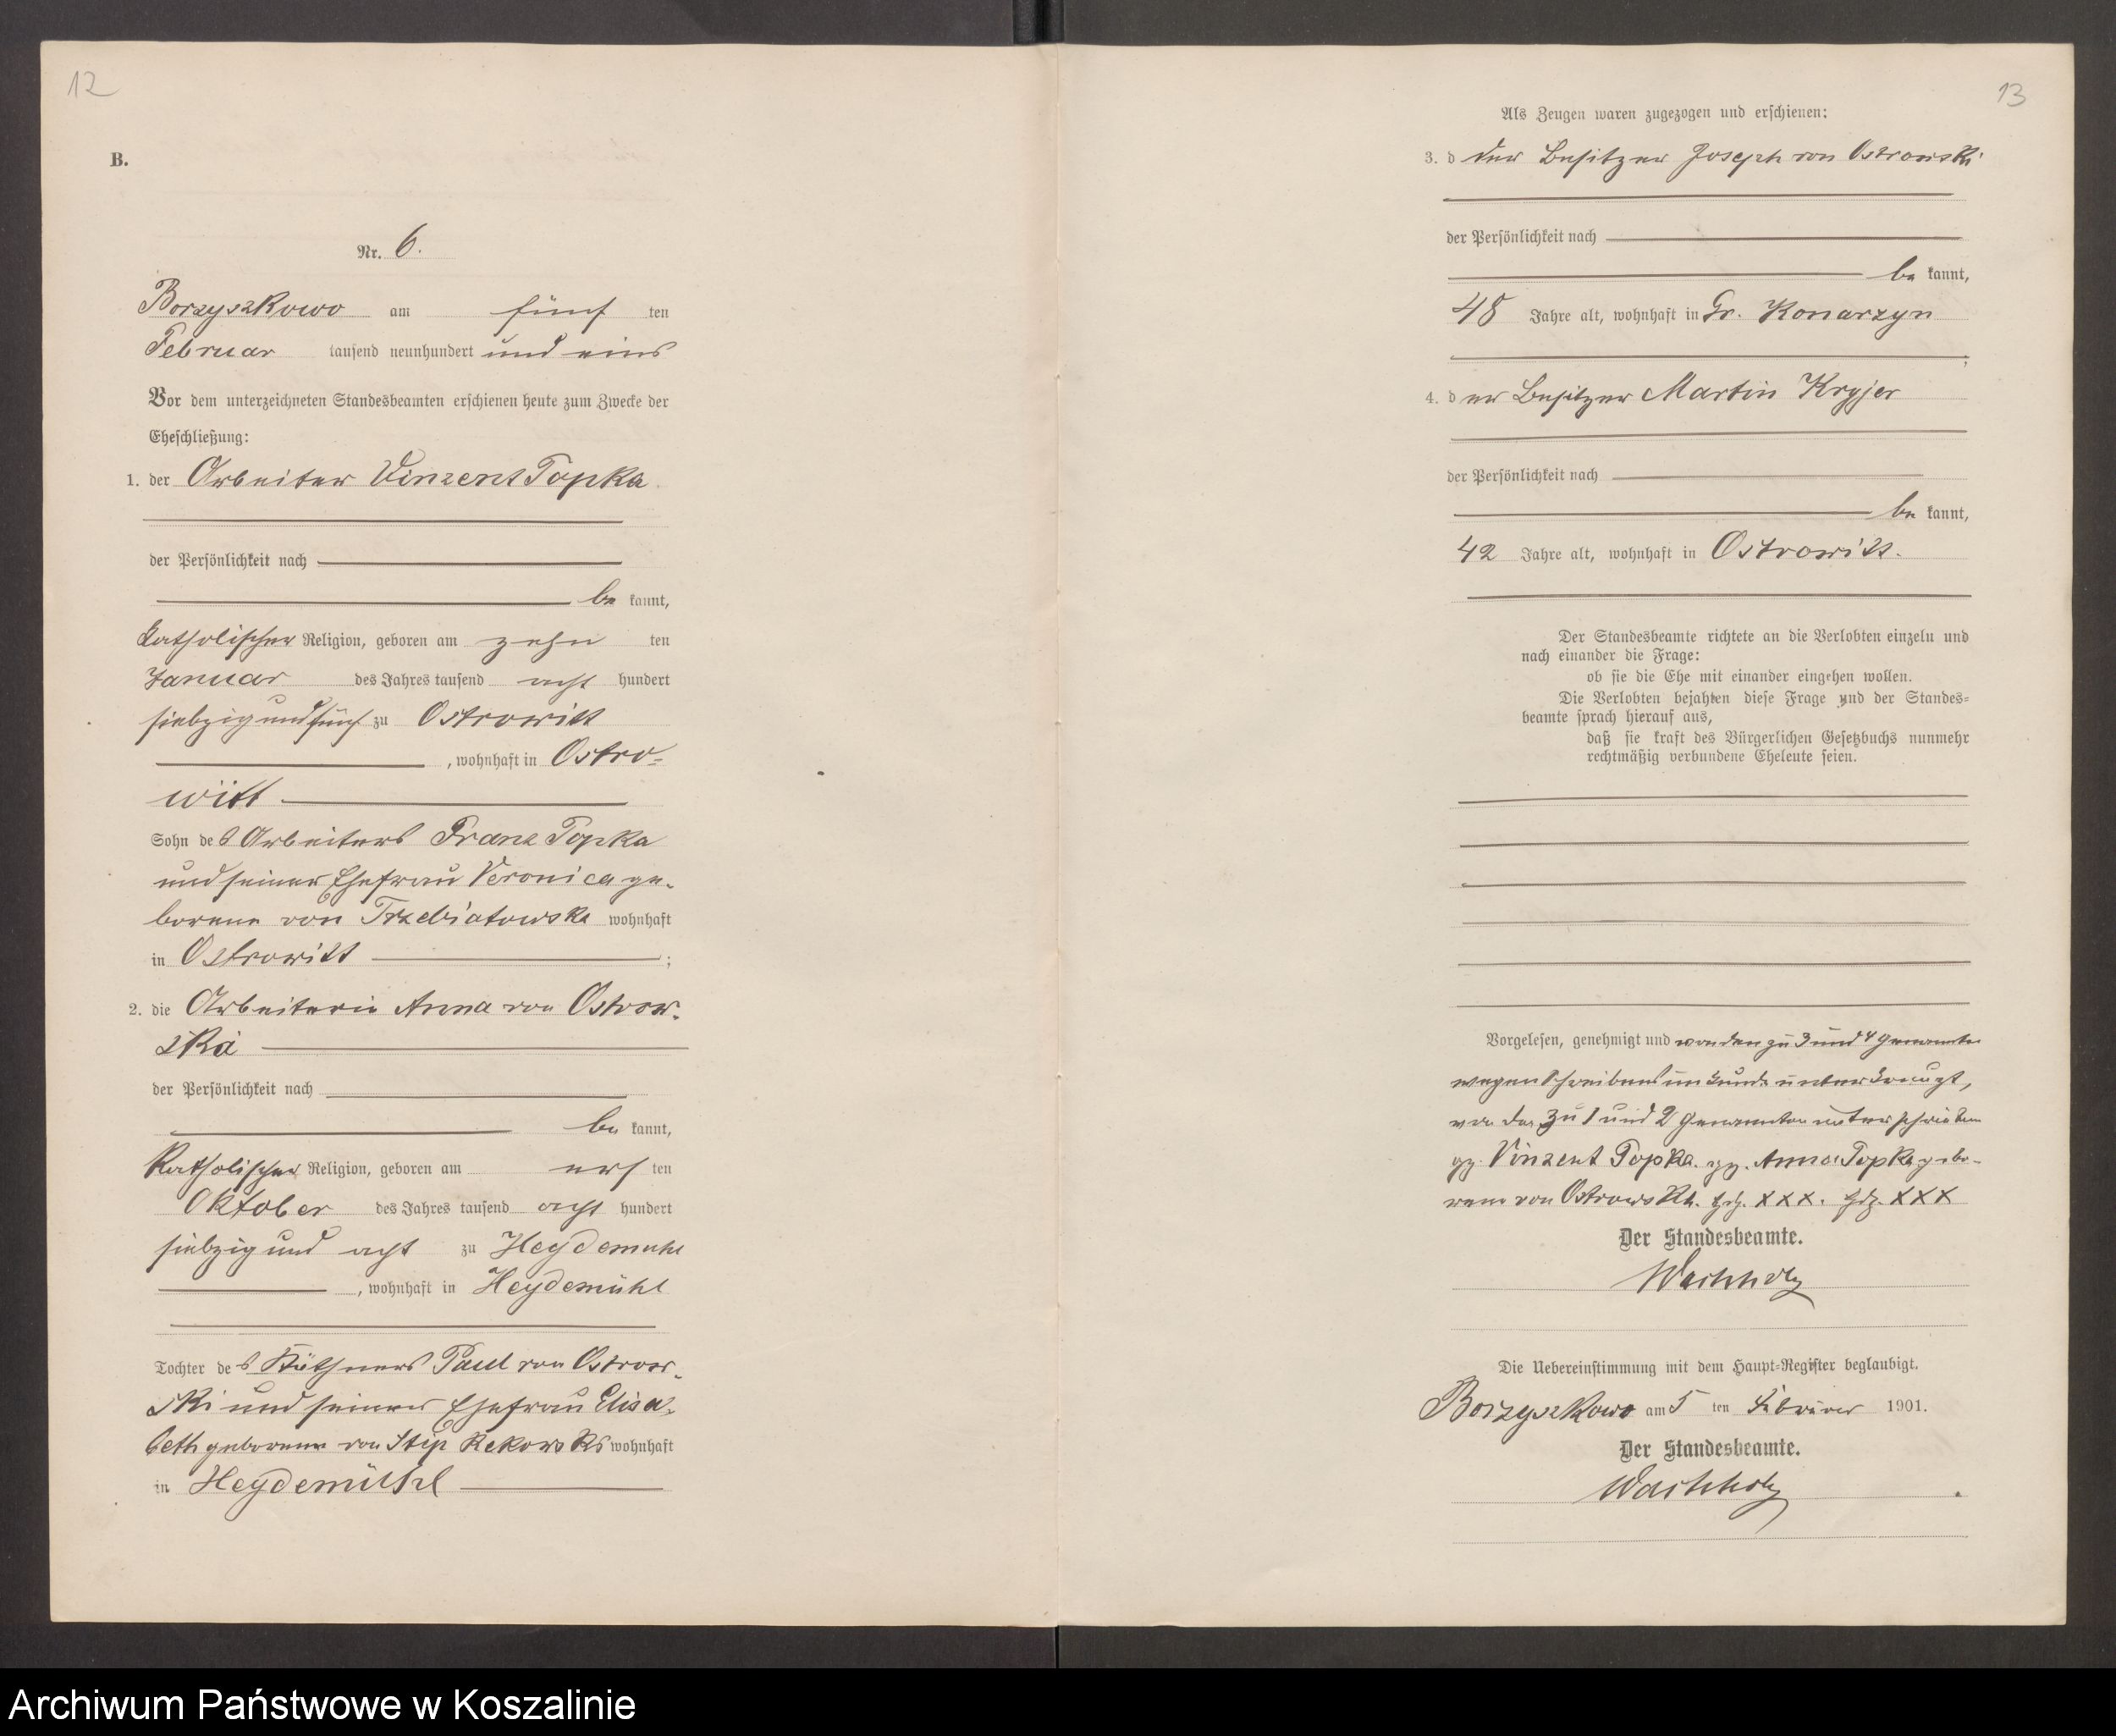 12
B.
Nr. 6.
Borzyszkowo am fünf ten
Februar tausend neunhundert und eins
Vor dem unterzeichneten Standesbeamten erschienen heute zum Zwecke der
Eheschließung:
1. der Arbeiter Vinzent Topka
der Persönlichkeit nach
be kannt,
katholischer Religion, geboren am zehn ten
Januar des Jahres tausend acht hundert
siebzig und fünf zu Ostrowitt
, wohnhaft in Ostro-
witt
Sohn des Arbeiters Franz Topka
und seiner Ehefrau Veronica ge-
borene von Trzebiatowska wohnhaft
in Ostrowitt ;
2. die Arbeiterin Anna von Ostrow-
ska
der Persönlichkeit nach
be kannt,
katholischer Religion, geboren am ers ten
Oktober des Jahres tausend acht hundert
siebzig und acht zu Heydemühl
, wohnhaft in Heydemühl
Tochter des Käthners Paul von Ostrow-
ski und seiner Ehefrau Elisa-
beth geborene von Stip Rekowski wohnhaft
in Heydemühl
13
Als Zeugen waren zugezogen und erschienen:
3. d der Besitzer Joseph von Ostrowski
der Persönlichkeit nach
be kannt,
48 Jahre alt, wohnhaft in Gr. Konarzyn
;
4. der Besitzer Martin Kryjer
der Persönlichkeit nach
be kannt,
42 Jahre alt, wohnhaft in Ostrowitt.
Der Standesbeamte richtete an die Verlobten einzeln und
nach einander die Frage:
ob sie die Ehe mit einander eingehen wollen.
Die Verlobten bejahten diese Frage und der Standes-
beamte sprach hierauf aus,
daß sie kraft des Bürgerlichen Gesetzbuchs nunmehr
rechtmäßig verbundene Eheleute seien.
Vorgelesen, genehmigt und von den zu 3 und 4 Genannten
wegen Schreibensunkunde unterkreuzt,
von den zu 1 und 2 Genannten unterschrieben
gz. Vinzent Topka. gz. Anna Topka gebo-
rene von Ostrowska. hdz. XXX. hdz. XXX
Der Standesbeamte.
Wachholz
Die Uebereinstimmung mit dem Haupt-Register beglaubigt.
Borzyszkowo am 5 ten Februar 1901.
Der Standesbeamte.
Wachholz
Archiwum Państwowe w Koszalinie